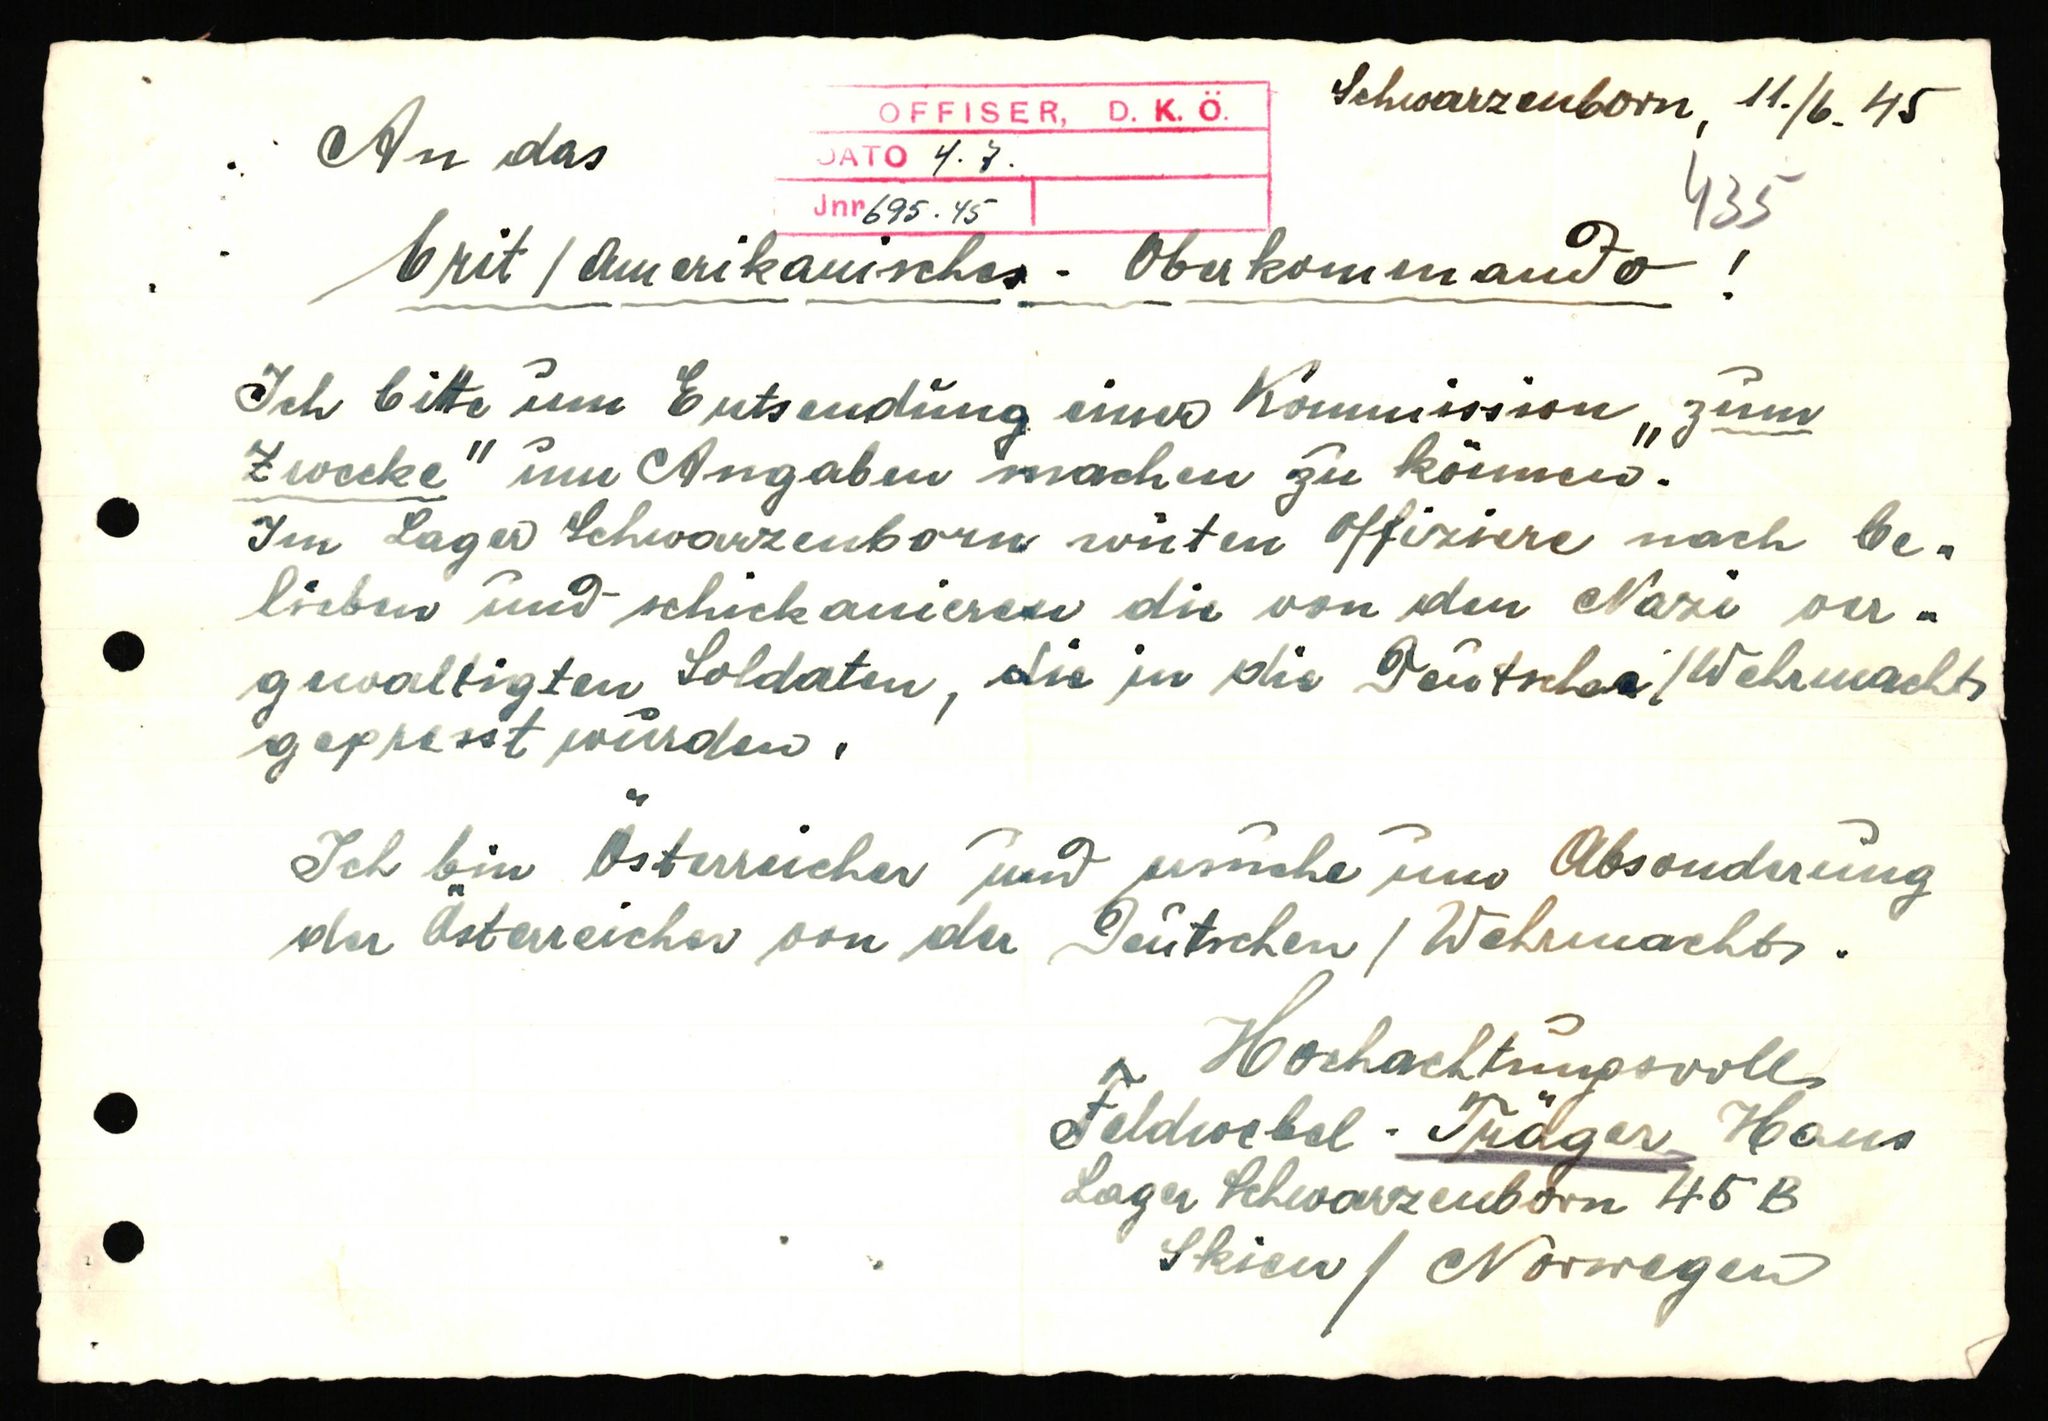 Schwarzenborn, 11./6. 45
OFFISER, D. K. Ö.
DATO 4. 7.
Jnr 695. 45
435
An das
brit / Amerikanisches - Oberkommando !
Ich bitte um Entsendung einer Kommission „zum
Zwecke" um Angaben machen zu können.
Im Lager Schwarzenborn wüten Offiziere nach be-
lieben und schickanieren die von den Nazi ver-
gewaltigten Soldaten, die in die Deutsche / Wehrmacht
gepresst wurden.
Ich bin Österreicher und ersuche um Absonderung
der Österreicher von der Deutschen / Wehrmacht.
Hochachtungsvoll
Feldwebel - Träger Hans
Lager Schwarzenborn 45 B
Skien / Norwegen